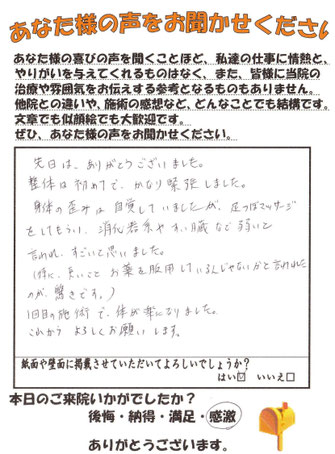 あなた様の声をお聞かせください
あなた様の喜びの声を聞くことほど、私達の仕事に情熱と、
やりがいを与えてくれるものはなく、また、皆様に当院の
治療や雰囲気をお伝えする参考となるものもありません。
他院との違いや、施術の感想など、どんなことでも結構です。
文章でも似顔絵でも大歓迎です。
ぜひ、あなた様の声をお聞かせください。
先日は、ありがとうございました。
整体は初めてで、かなり緊張しました。
身体の歪みは自覚していましたが、足つぼマッサージ
をしてもらい、消化器系やすい臓など弱いて
言われ、すごいて思いました。
(特に、長いこと お薬を服用しているんじゃないかと言われた
のが、驚きです。)
1回目の施術で、体が楽になりました。
これから よろしくお願いします。
紙面や壁面に掲載させていただいてよろしいでしょうか?
はい☑ いいえ□
本日のご来院いかがでしたか?
後悔・納得・満足・感激
ありがとうございます。